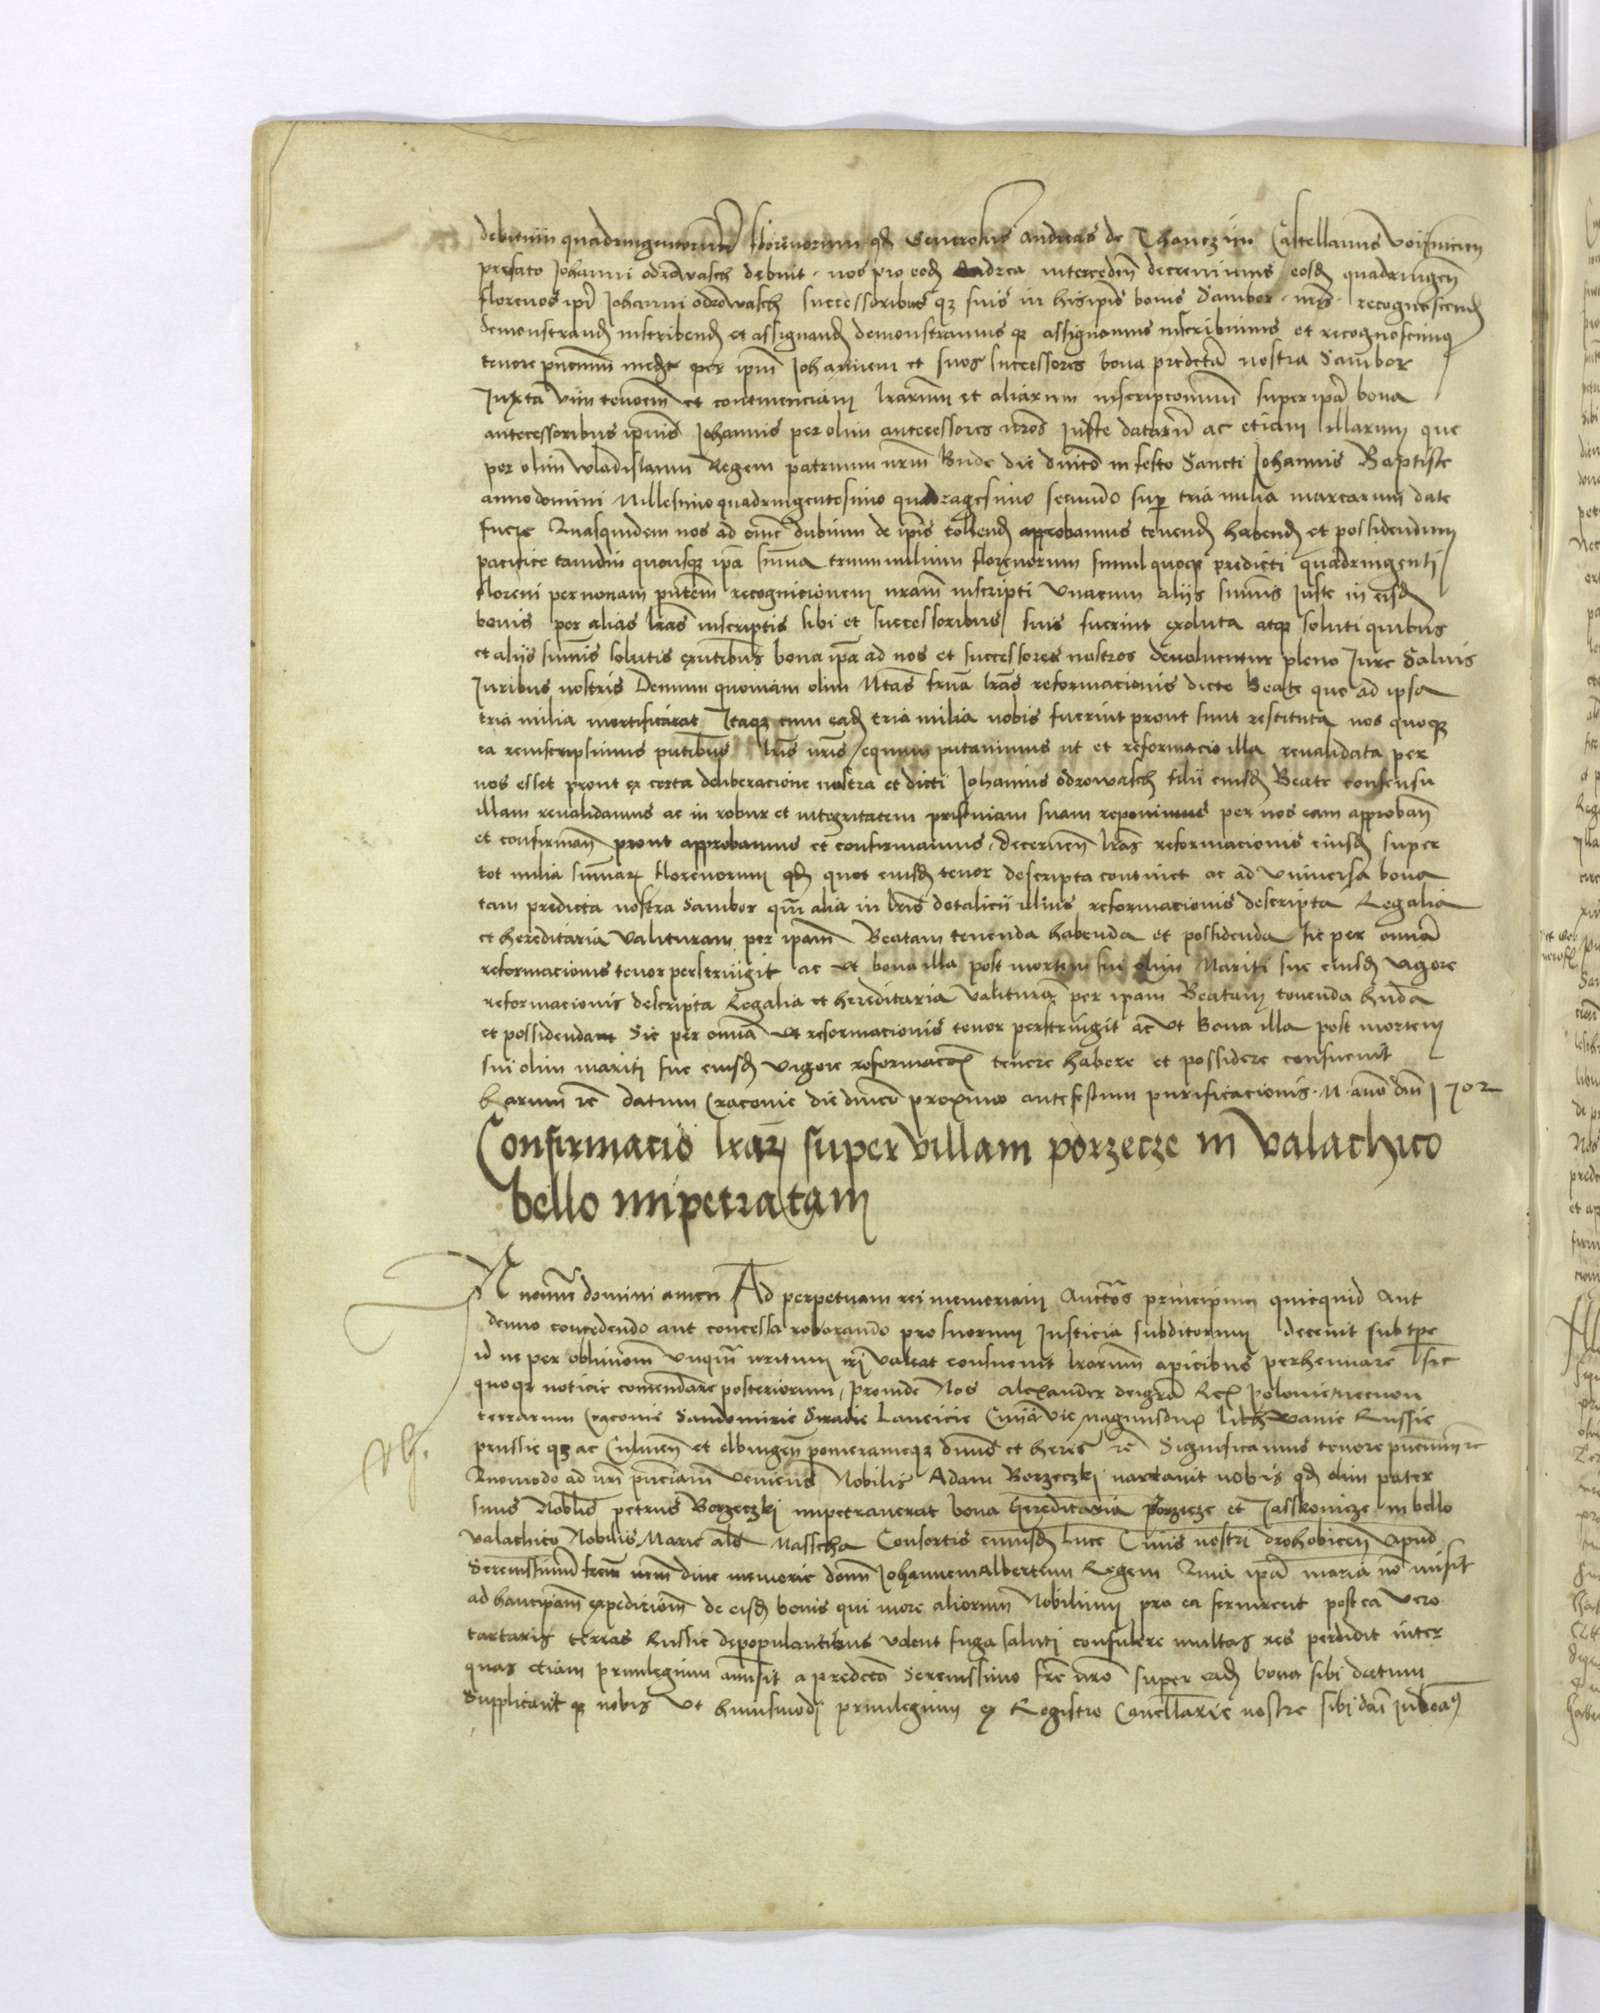 debitum quadringentorum florenorum qd Generosus Andreas de Thanczin Castellanus Voiniciens
prefato Johanni Odrowasch debuit nos pro eod Andrea interceden decrevimus eosd quadringen
florenos ipi Johanni odrowasch successoribus qz suis in his ipis bonis Sambor nris recognoscend
demonstrand inscribend et assignand demonstramus qz assignamus inscribimus et recognoscimus
tenore pncium per ipm Johannem et suos successores bona predicta nostra Sambor
Juxta vim tenorem et continenciam lrarum et aliarum inscripcionum super ipa bona
antecessoribus ipius Johannis per olim antecessores nros Juste datarum ac etiam illarum que
per olim Wladislaum Regem patruum nrm Bude die dnico in festo Sancti Johannis Baptiste
anno domini Millesimo quadringentesimo quadragesimo secundo sup tria milia marcarum date
fuere Quasquidem nos ad omne dubium de ipis tollend approbamus tenend habend et possidendum
pacifice tamdiu quousqz ipa suma trium milium florenorum simul quoqz predicti quadringenti
floreni per nonam pntem recognicionem nram inscripti Unacum aliis sumis Juste in eisd
bonis per alias lras inscriptis sibi et successoribus suis fuerint exoluta atqz soluti quibus
et aliis sumis solutis exntibus bona ipa ad nos et successores nostros devoluentur pleno Jure Salvis
Juribus nostris Demum quoniam olim Mtas frna lras reformacionis dicte Beate que ad ipsa
tria milia mortificarat Itaqz cum ead tria milia nobis fuerint prout sunt restituta nos quoqz
ea reinscripsimus pntibus lris nris equum putavimus ut et reformacio illa revalidata per
nos esset prout ex certa deliberacione nostra et dicti Johannis Odrowasch filii eiusd Beate consensu
illam revalidamus ac in robur et integritatem pristinam suam reponimus per nos eam approban
et confirman prout approbamus et confirmamus decernen lras reformacionis eiusd super
tot milia sumarz florenorum qd quot eiusd tenor descripta continet ac ad Universa bona
tam predicta nostra Sambor qm alia in lris dotalicii illius reformacionis descripta Regalia
et hereditaria valituram per ipam Beatam tenenda habenda et possidenda sic per omnia
reformacionis tenor perstringit ac ut bona illa post mortem sui olim Mariti sue eiusd vigore
reformacionis descripta Regalia et hereditaria valitura per ipam Beatam tenenda hnda
et possidendam Sic per omnia ut reformacionis tenor perstringit ac ut Bona illa post mortem
sui olim mariti sue eiusd vigore reformacois tenere habere et possidere consuevit
Harum rc datum Cracovie die dnico proximo ante festum purificacionis M anno dni 1502
Confirmacio lrarz super villam porzecze in Valachico
bello impetratam
In nomine domini amen Ad perpetuam rei memoriam Auctos principum quicquid aut
denuo concedendo aut concessa roborando pro suorum Justicia subditorum decernit sub tpe
id ne per oblivionem unquam irritum iri valeat consuevit lrarum apicibus perhennare sic
quoqz noticie comendare posteriorum proinde Nos Alexander dei gra Rex polonie necnon
terrarum Cracovie Sandomirie Siradie Lancicie Cuiavie magnusdux lithwanie Russie
prussie qz ac Culmen et elbingen pomeranieqz dnus et heres rc Significamus tenore pncium rc
Quomodo ad nri pnciam veniens Nobilis Adam Borzeczki narravit nobis qd olim pater
suus Noblis petrus Borzeczki impetraverat bona hereditaria porzecze et Jasskovicze in bello
valachico Nobilis Marie als Masscha Consortis eiusd luce Civis nostri drohobicen apud
Serenissimum frem nrm dive memorie domi Johannem Albertum Regem Quia ipa maria no misit
ad hanc ipam expedicionem de eisd bonis qui more aliorum Nobilium pro ea serviret post ea vero
tartaris terras Russie depopulantibus volent fuga saluti consulere multas res perdidit inter
quas etiam privilegium amisit a predicto Serenissimo fre nro super ead bona sibi datum
Supplicavit qz nobis ut huiusmodi privilegium ex Registro Cancellarie nostre sibi dari iubeas